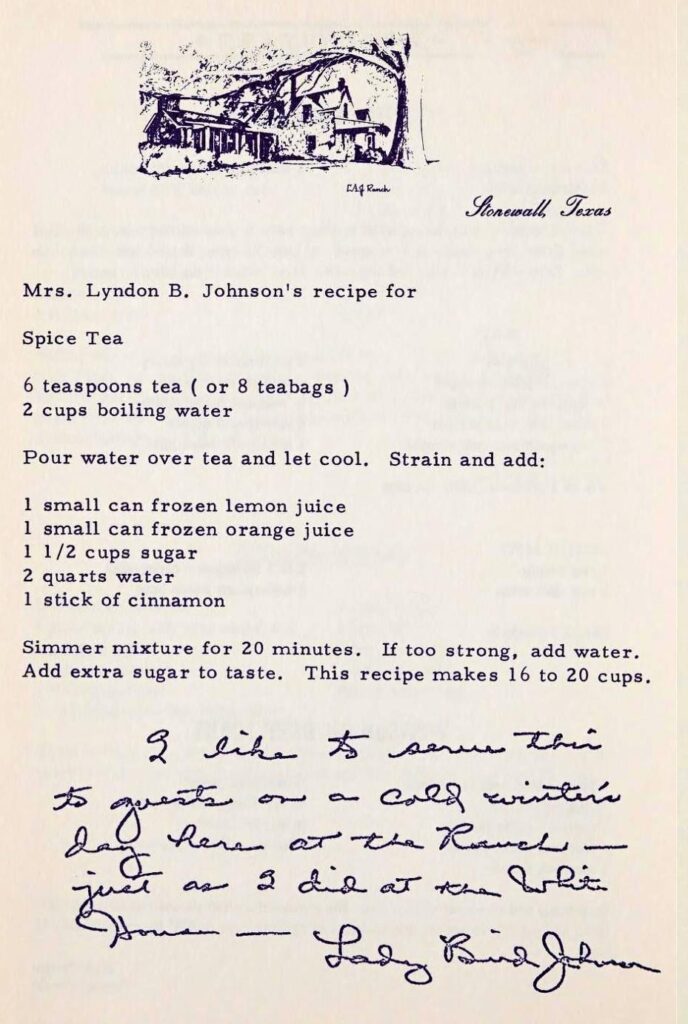 LBJ Ranch
Stonewall, Texas
Mrs. Lyndon B. Johnson's recipe for
Spice Tea
6 teaspoons tea ( or 8 teabags )
2 cups boiling water
Pour water over tea and let cool. Strain and add:
1 small can frozen lemon juice
1 small can frozen orange juice
1 1/2 cups sugar
2 quarts water
1 stick of cinnamon
Simmer mixture for 20 minutes. If too strong, add water.
Add extra sugar to taste. This recipe makes 16 to 20 cups.
I like to serve this
to guests on a cold winter's
day here at the Ranch —
just as I did at the White
House — Lady Bird Johnson